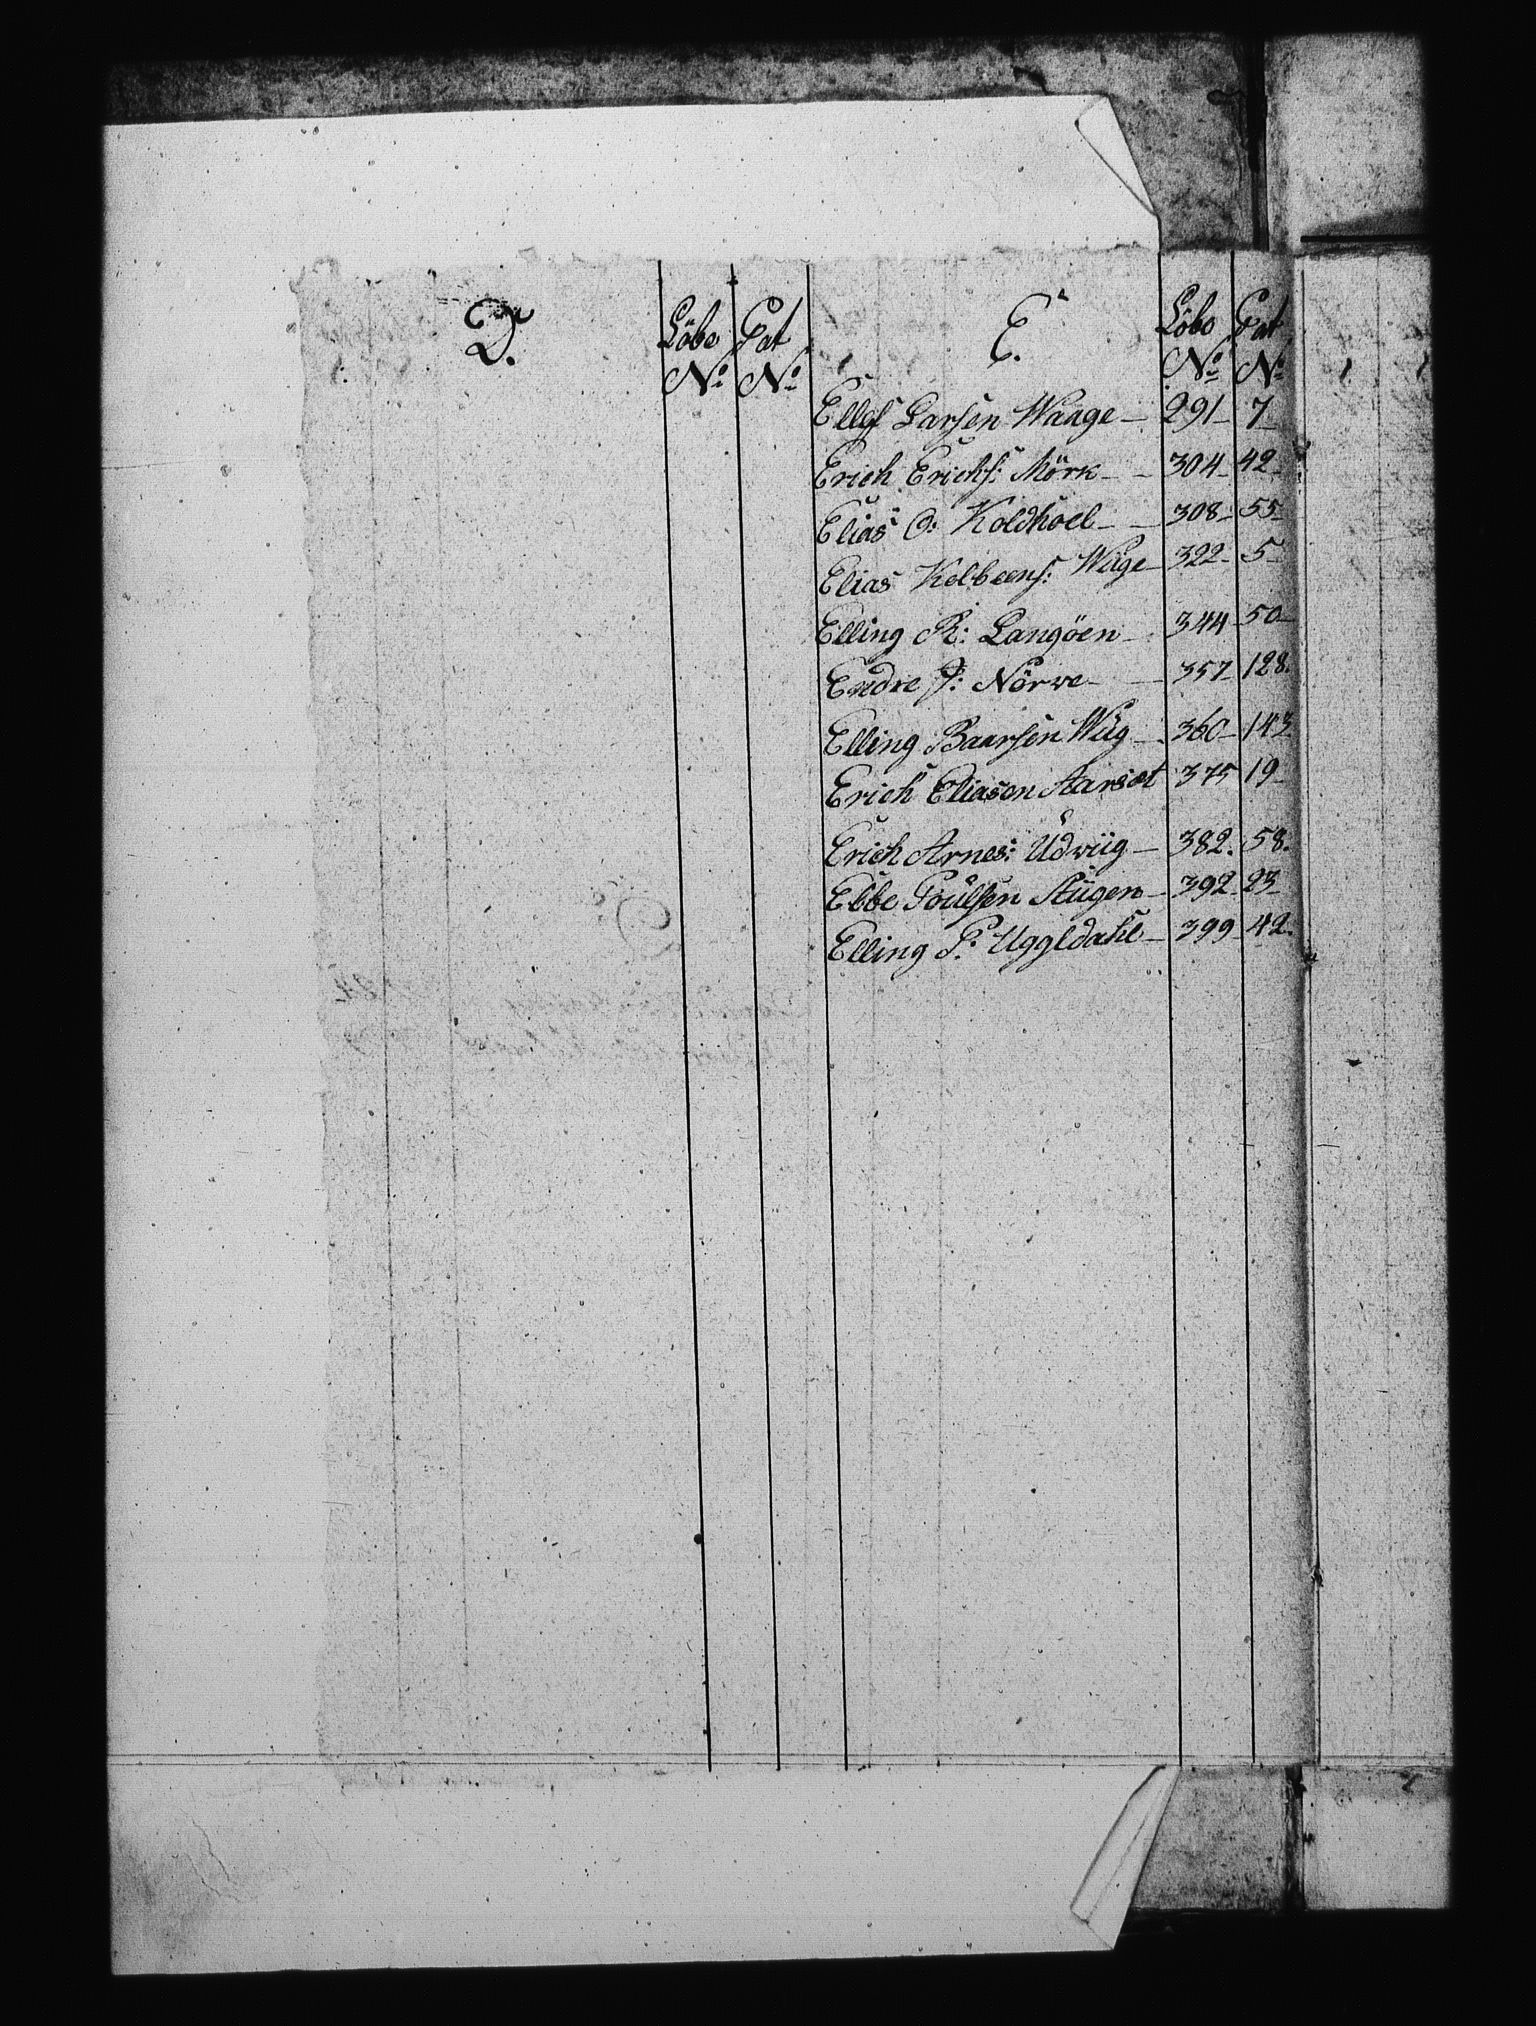 D.
Löbe Pat
No No
E.
Löbe Pat
No No
Ellef Larsen Waage — 291 — 7 —
Erich Erichs: Mörk — — 304 — 42 —
Elias O: Koldhoel — — 308 — 55 —
Elias Kolbeens: Wage — 322 — 5 —
Elling R: Langöen — 344 — 50 —
Endre J: Nörve — — 357 — 128.
Elling Baarsen Wiig — 360 — 143
Erich Eliasen Aarsæt 375 19 —
Erich Arnes: Udviig — 382. 58.
Ebbe Poulsen — 392 — 23 —
Elling P: Uggldahl — 399 — 42.